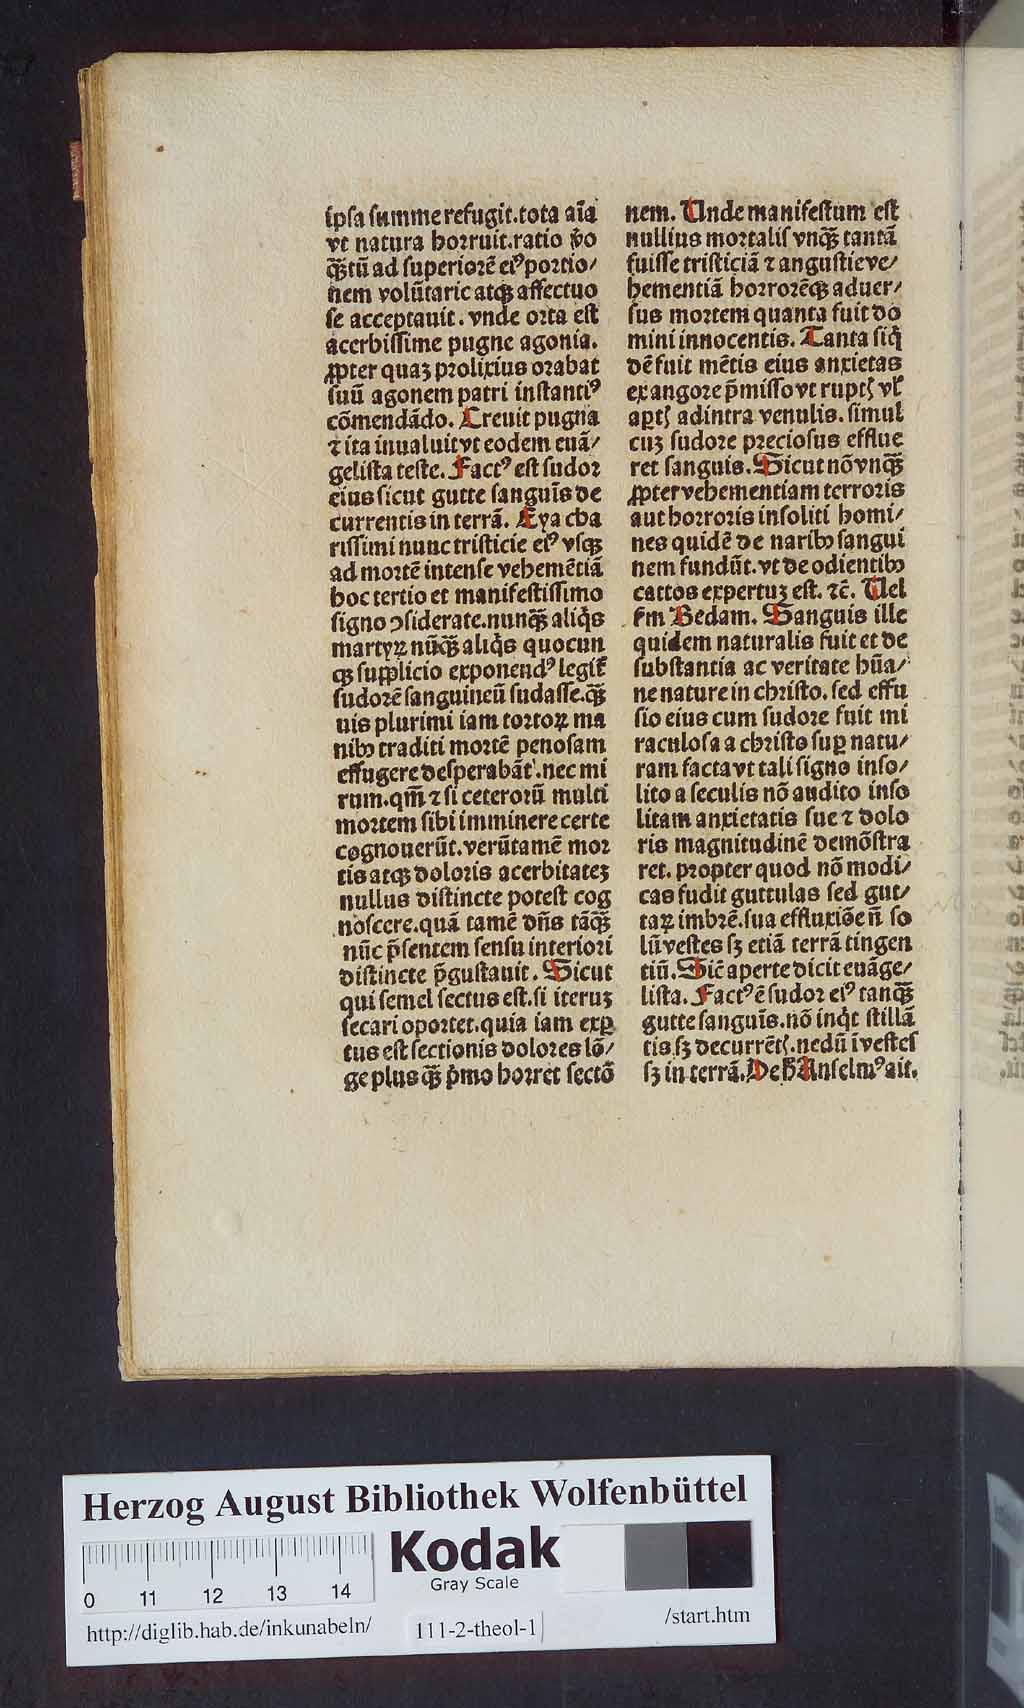 ipſa ſumme refugit.tota aīa
vt natura horruit.ratio v̄o
qꝫ̄tū ad ſuperiorē eiꝰ portio/
nem volūtarie atqꝫ affectuo
ſe acceptauit. vnde orta eſt
acerbiſſime pugne agonia.
ꝓpter quaꝫ prolixius orabat
ſuū agonem patri inſtantiꝰ
cōmendādo. Creuit pugna
⁊ ita inualuit vt eodem euā/
geliſta teſte. Factꝰ eſt ſudor
eius ſicut gutte ſanguīs de
currentis in terrā. Eya cha
riſſimi nunc triſticie eiꝰ vſqꝫ
ad mortē intenſe vehemētiā
hoc tertio et manifeſtiſſimo
ſigno ↄſiderate.nunqꝫ̄ aliq̇s
martyꝝ nūqꝫ̄ aliq̇s quocun
qꝫ ſupplicio exponendꝰ legit̄
ſudorē ſanguineū ſudaſſe.qꝫ̄
uis plurimi iam tortoꝝ ma
nibꝫ traditi mortē penoſam
effugere deſperabāt'.nec mi
rum.qm̄ ⁊ ſi ceterorū multi
mortem ſibi imminere certe
cognouerūt.verūtamē mor
tis atqꝫ doloris acerbitateꝫ
nullus diſtincte poteſt cog
noſcere.quā tamē dn̄s tāqꝫ̄
nūc p̄ſentem ſenſu interiori
diſtincte p̄guſtauit. Sicut
qui ſemel ſectus eſt.ſi iteruꝫ
ſecari oportet.quia iam exꝑ
tus eſt ſectionis dolores lō/
ge plus qꝫ̄ ṗmo horret ſectō
nem. Unde manifeſtum eſt
nullius mortalis vnqꝫ̄ tantā
fuiſſe triſticiā ⁊ anguſtie ve/
hementiā horrorēqꝫ aduer/
ſus mortem quanta fuit do
mini innocentis. Tanta ſiq̇
dē fuit mētis eius anxietas
ex angore p̄miſſo vt ruptꝭ vl̓
aptꝭ adintra venulis. ſimul
cuꝫ ſudore precioſus efflue
ret ſanguis. Sicut nō vnqꝫ̄
ꝓpter vehementiam terroris
aut horroris inſoliti homi/
nes quidē de naribꝫ ſangui
nem fundūt. vt de odientibꝫ
cattos expertuꝫ eſt. ⁊c̄. Vel
ẜm Bedam. Sanguis ille
quidem naturalis fuit et de
ſubſtantia ac veritate hūa/
ne nature in chriſto. ſed effu
ſio eius cum ſudore fuit mi
raculoſa a chriſto ſuꝑ natu/
ram facta vt tali ſigno inſo/
lito a ſeculis nō audito inſo
litam anxietatis ſue ⁊ dolo
ris magnitudinē demōſtra
ret. propter quod nō modi/
cas fudit guttulas ſed gut/
taꝝ imbrē.ſua effluxiōe n̄ ſo
lū veſtes ſꝫ etiā terrā tingen
tiū. Sic̄ aperte dicit euāge/
liſta. Factꝰ ē ſudor eiꝰ tanqꝫ̄
gutte ſanguīs.nō inq̇t ſtillā
tis ſꝫ decurrētꝭ.nedū ī veſtes
ſꝫ in terrā. De h̄ Anſelmꝰ ait.
Herzog August Bibliothek Wolfenbüttel
Kodak
Gray Scale
0 11 12 13 14
http://diglib.hab.de/inkunabeln/ 111-2-theol-1 /start.htm